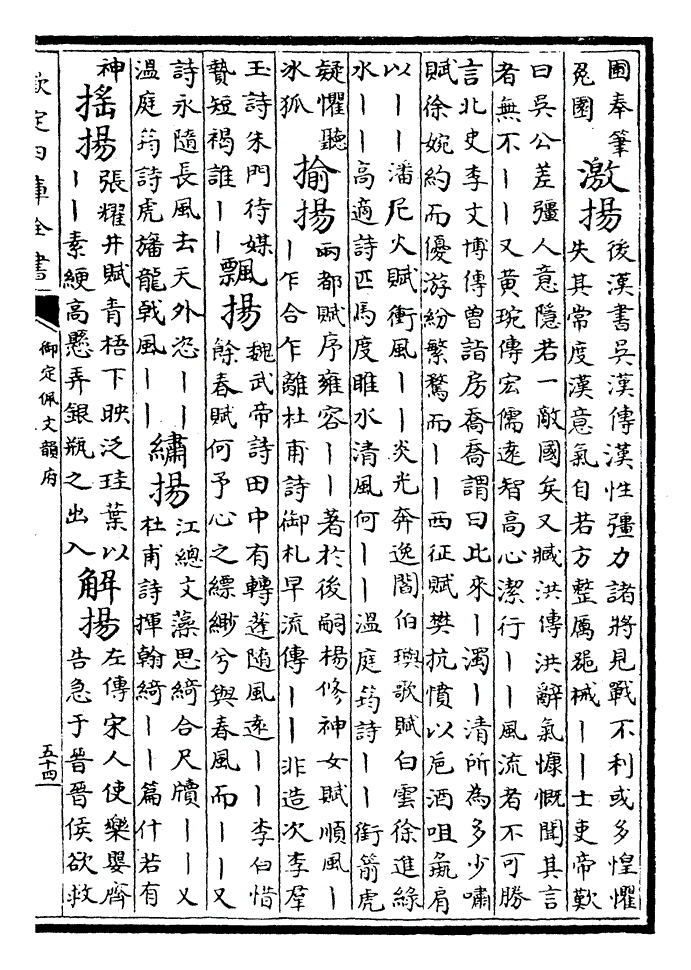 圃奉筆
兔園
激揚
後漢書吳漢傳漢性彊力諸將見戰不利或多惶懼
失其常度漢意氣自若方整厲器械｜｜士吏帝歎
曰吳公差彊人意隱若一敵國矣又臧洪傳洪辭氣慷慨聞其言
者無不｜｜又黃琬傳宏儒遠智高心潔行｜｜風流者不可勝
言北史李文博傳曾詣房喬喬謂曰此來｜濁｜清所為多少嘯
賦徐婉約而優游紛繁騖而｜｜西征賦樊抗憤以卮酒咀彘肩
以｜｜潘尼火賦衝風｜｜炎光奔逸閻伯璵歌賦白雲徐進綠
水｜｜高適詩匹馬度睢水清風何｜｜溫庭筠詩｜｜銜箭虎
疑懼聽
冰狐
揄揚
兩都賦序雍容｜｜著於後嗣楊修神女賦順風｜
｜乍合乍離杜甫詩御札早流傳｜｜非造次李羣
玉詩朱門待媒
贄短褐誰｜｜
飄揚
魏武帝詩田中有轉蓬隨風遠｜｜李白惜
餘春賦何予心之縹緲兮與春風而｜｜又
詩永隨長風去天外恣｜｜
溫庭筠詩虎旛龍戟風｜｜
繡揚
江總文藻思綺合尺牘｜｜又
杜甫詩揮翰綺｜｜篇什若有
神
搖揚
張耀井賦青梧下映泛珪葉以
｜｜素綆高懸弄銀瓶之出入
解揚
左傳宋人使樂嬰齊
告急于晉晉侯欲救
欽定四庫全書
御定佩文韻府
五十四